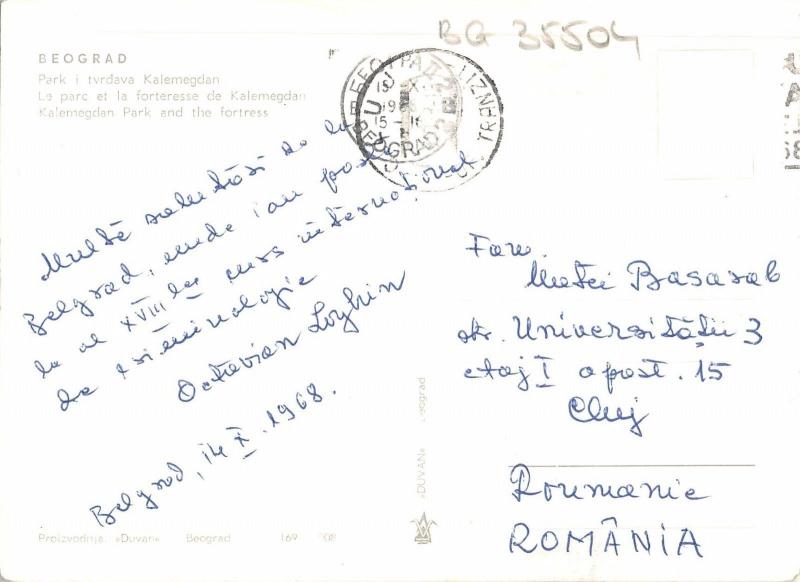 BG 35504
BEOGRAD
Park i tvrđava Kalemegdan
Le parc et la forteresse de Kalemegdan
Kalemegdan Park and the fortress
BEOGRAD
Multe salutări de la
Belgrad, unde iau parte
la al XVIII lea curs internațional
de criminologie
Octavian Loghin
Belgrad, 14 X. 1968.
Fam.
Matei Basarab
str. Universității 3
etaj I apart. 15
Cluj
Roumanie
ROMÂNIA
«DUVAN» Beograd
Proizvodnja «Duvan» Beograd 169